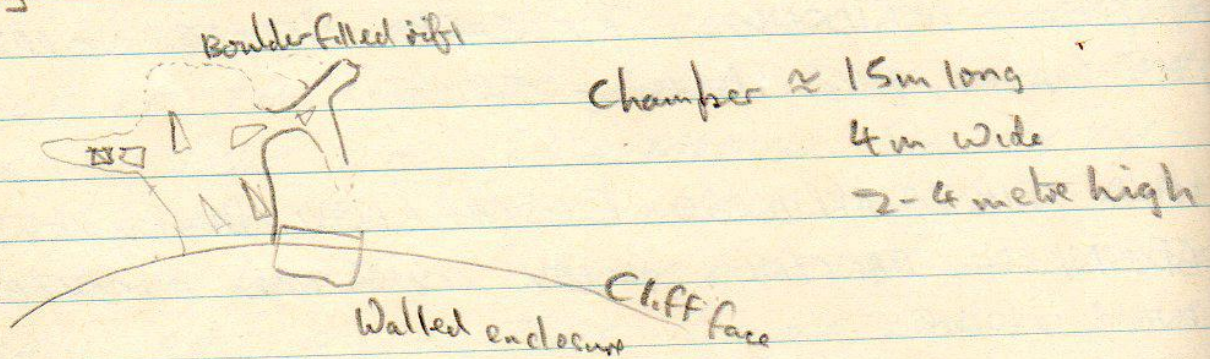 Boulder filled rift
Chamber ≈ 15m long
4 m wide
2-4 metre high
Cliff face
Walled enclosure